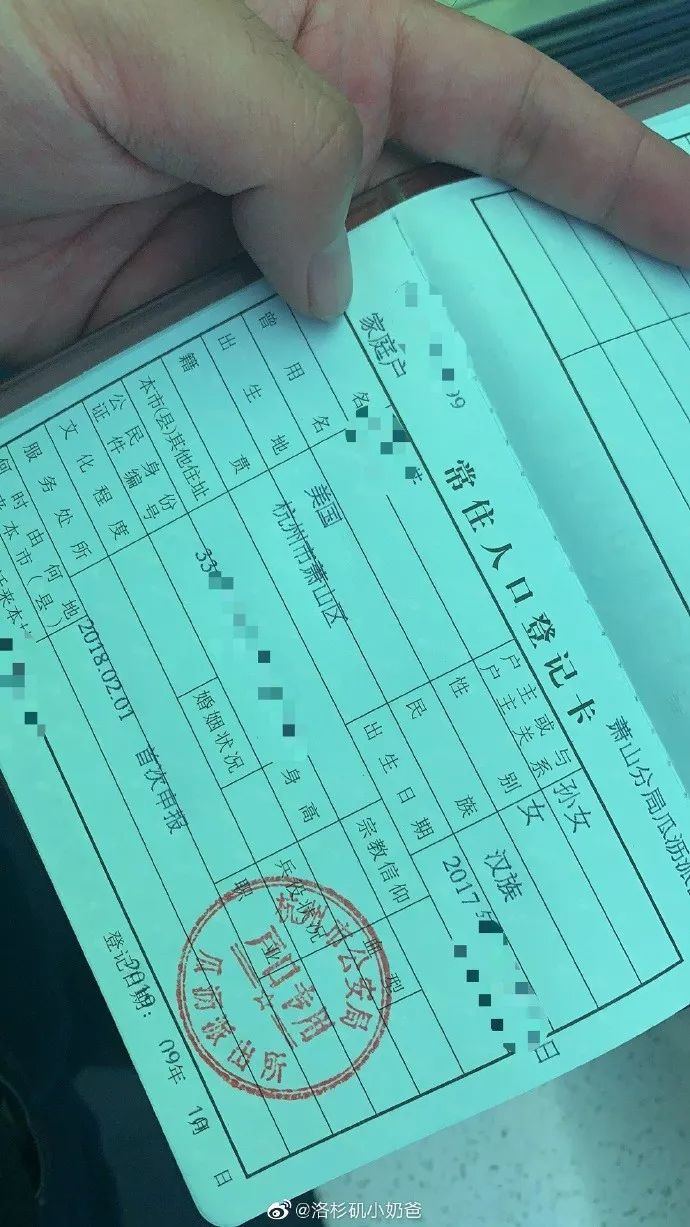 萧山分局瓜沥派
家庭户
99
常住人口登记卡
名
户主或与户主关系
孙女
曾用名
性别
女
出生地
美国
民族
汉族
籍贯
杭州市萧山区
出生日期
2017年
日
本市(县)其他住址
宗教信仰
公民身份证件编号
33
身高
血型
文化程度
婚姻状况
兵役状况
服务处所
职业
何时由何地
来本市(县)
2018.02.01
首次申报
杭州市公安局
户口专用
瓜沥派出所
登记日期:
09年
日
@洛杉矶小奶爸